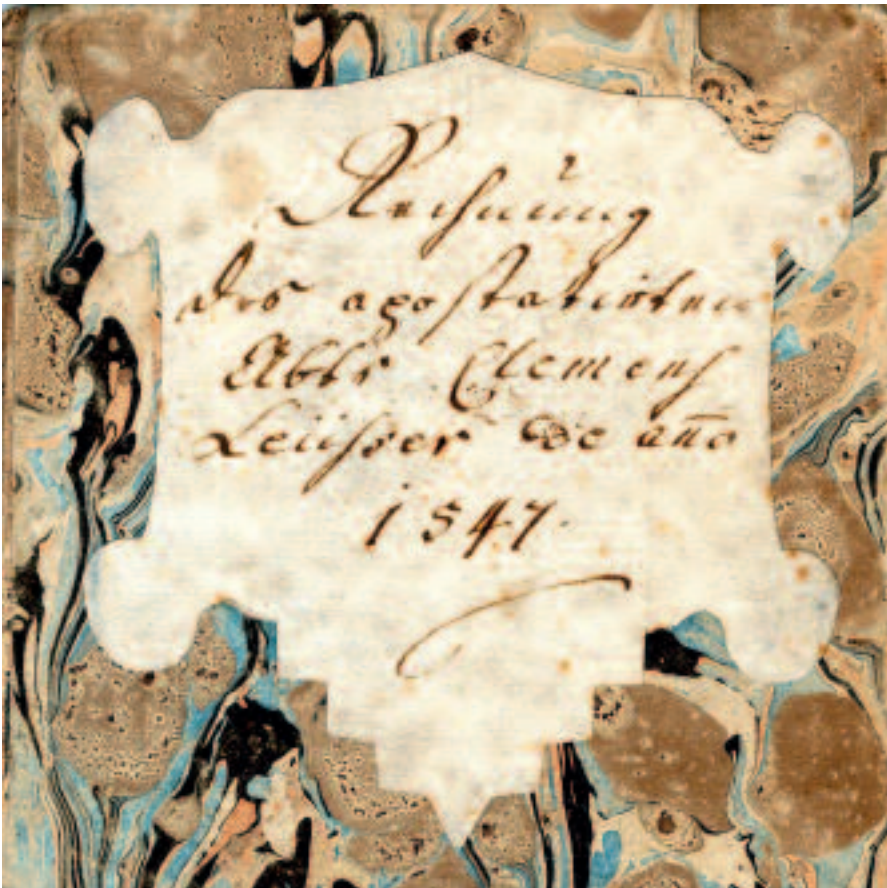 Rechnung
des apostatirten
Abbts Clemens
Leüsser de año
1547.